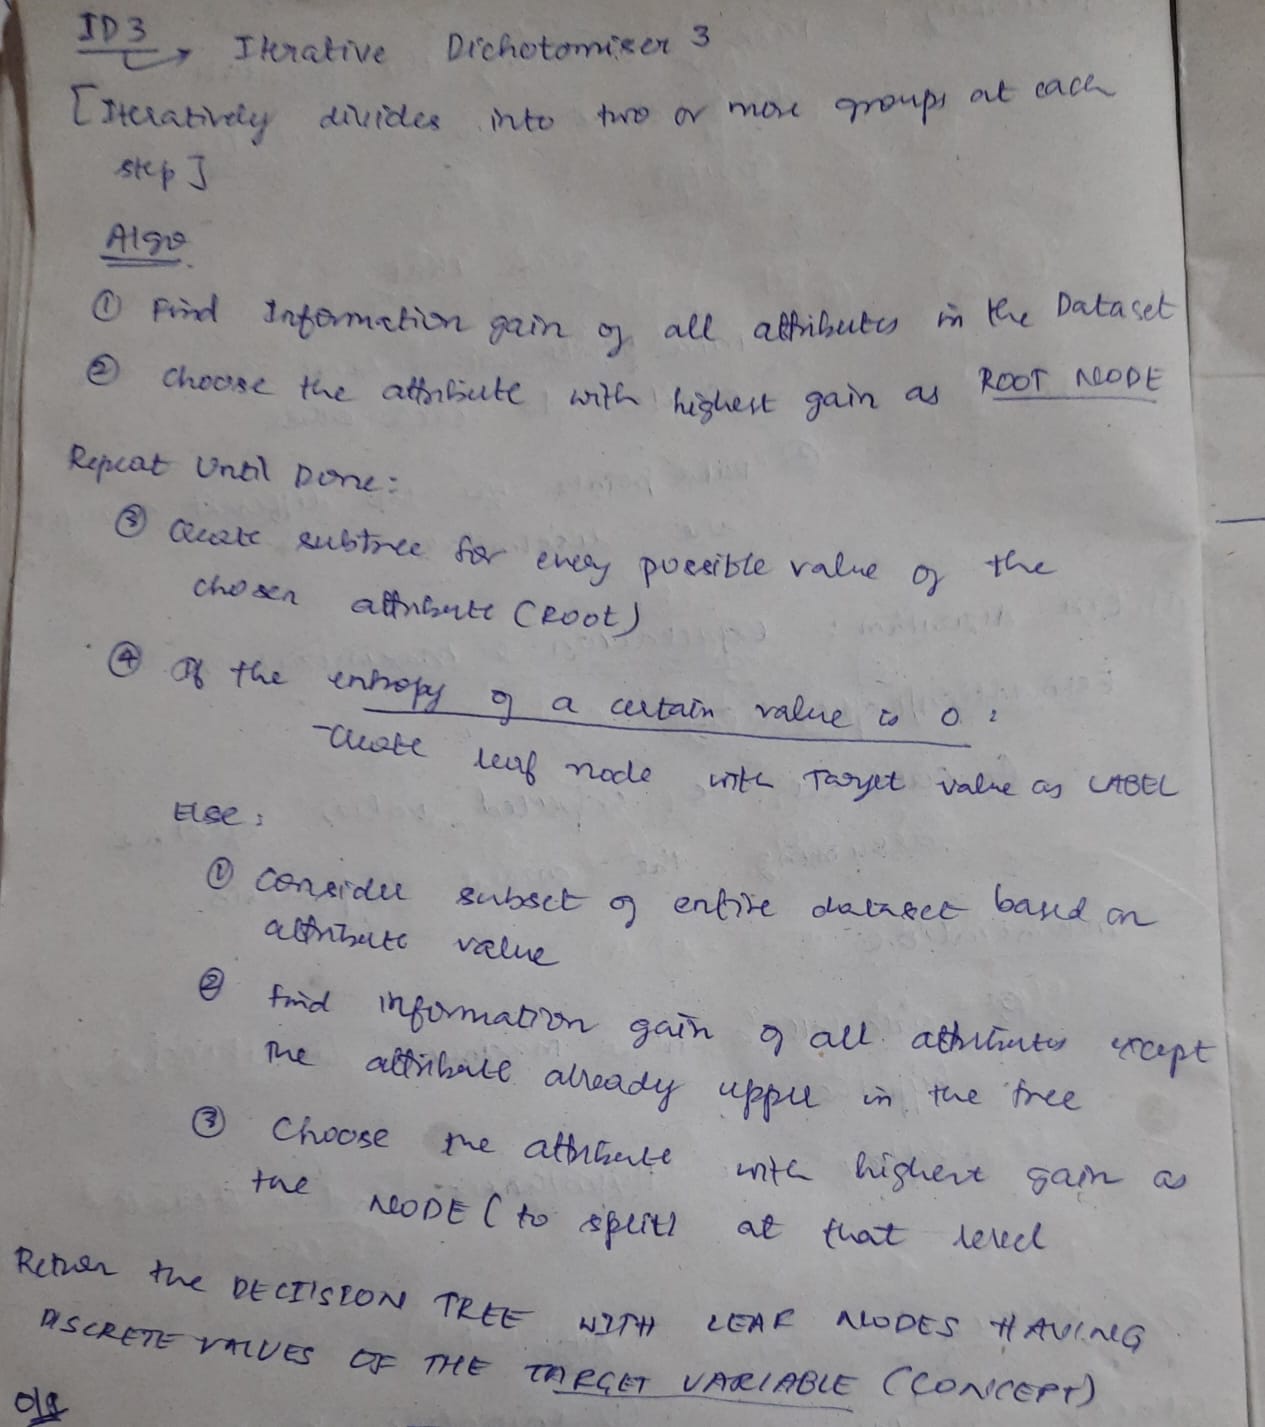 ID3 → Iterative Dichotomiser 3
[Iteratively divides into two or more groups at each
step]
Algo
① Find Information gain of all attributes in the Dataset
② Choose the attribute with highest gain as ROOT NODE
Repeat Until Done:
③ Create subtree for every possible value of the
chosen attribute (Root)
④ If the entropy of a certain value is 0 :
- Create leaf node with Target value as LABEL
Else :
① Consider subset of entire dataset based on
attribute value
② Find information gain of all attributes except
the attribute already upper in the tree
③ Choose the attribute with highest gain as
the NODE (to split) at that level
Return the DECISION TREE WITH LEAF NODES HAVING
DISCRETE VALUES OF THE TARGET VARIABLE (CONCEPT)